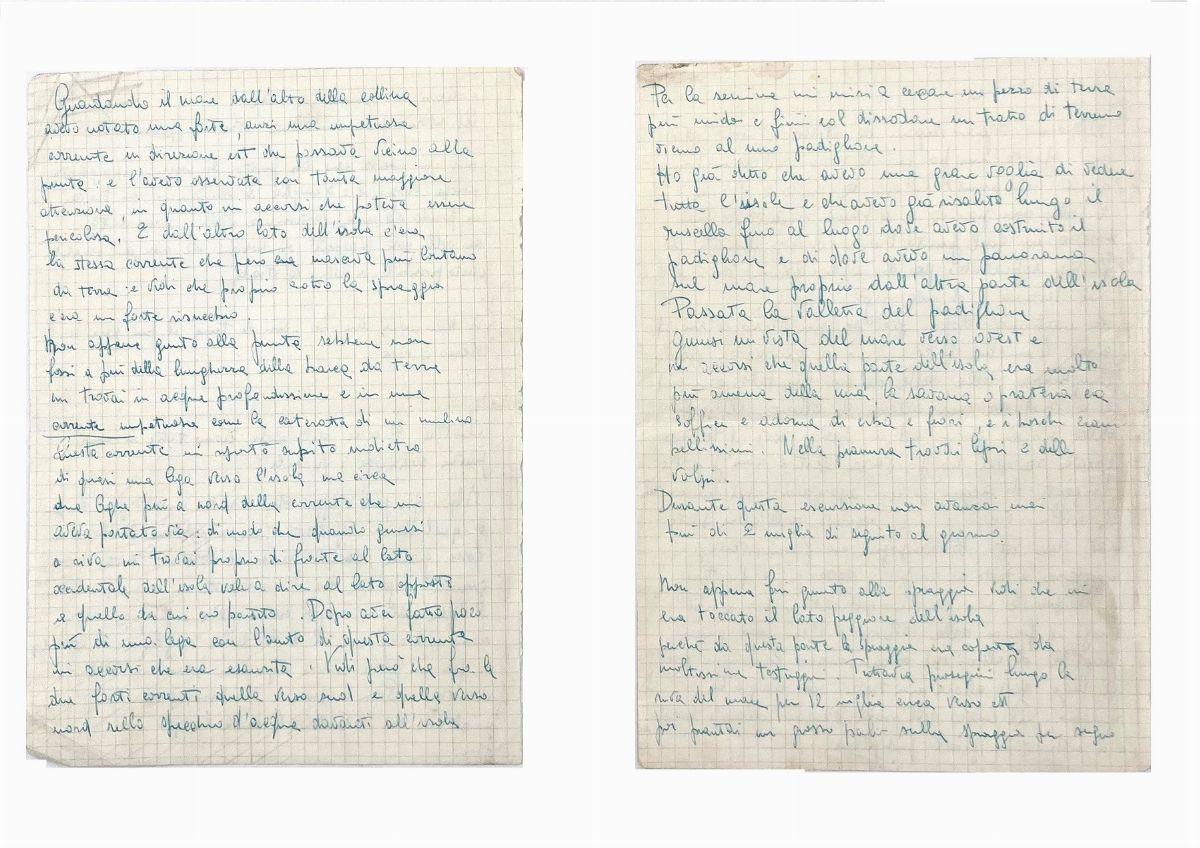 Guardando il mare dall'alto della collina
avevo notato una forte, anzi una impetuosa
corrente in direzione est che passava vicino alla
punta: e l'avevo osservata con tanta maggiore
attenzione, in quanto mi accorsi che poteva essere
pericolosa. E dall'altro lato dell'isola c'era
la stessa corrente che però era nasceva più lontano
da terra: e vidi che proprio sotto la spiaggia
c'era un forte risucchio.
Non appena giunto alla punta sebbene non
fossi a più della lunghezza della barca da terra
mi trovai in acque profondissime e in una
corrente impetuosa come la cateratta di un mulino
Questa corrente mi riportò subito indietro
di quasi una lega verso l'isola ma circa
due leghe più a nord della corrente che mi
aveva portato via: di modo che quando giunsi
a riva mi trovai proprio di fronte al lato
occidentale dell'isola vale a dire al lato opposto
a quello da cui ero partito. Dopo aver fatto poco
più di una lega con l'aiuto di questa corrente
mi accorsi che era esaurita. Vidi però che fra le
due forti correnti quella verso sud e quella verso
nord nello specchio d'acqua davanti all'isola
Per la semina mi misi a cercare un pezzo di terra
più umido e finii col dissodare un tratto di terreno
vicino al mio padiglione.
Ho già detto che avevo una gran voglia di vedere
tutta l'isola e che avevo già risalito lungo il
ruscello fino al luogo dove avevo costruito il
padiglione e di dove avevo un panorama
sul mare proprio dall'altra parte dell'isola
Passata la valletta del padiglione
giunsi in vista del mare verso ovest e
mi accorsi che quella parte dell'isola era molto
più amena della mia, la savana o prateria era
soffice e adorna di erba e fiori, e i boschi erano
bellissimi. Nella pianura trovai lepri e delle
volpi.
Durante questa escursione non avanzai mai
più di 2 miglia di seguito al giorno.
Non appena fui giunto alla spiaggia vidi che mi
era toccato il lato peggiore dell'isola
perché da questa parte la spiaggia era coperta da
moltissime testuggini. Tuttavia proseguii lungo la
riva del mare per 12 miglia circa verso est
poi piantai un grosso palo sulla spiaggia per segno